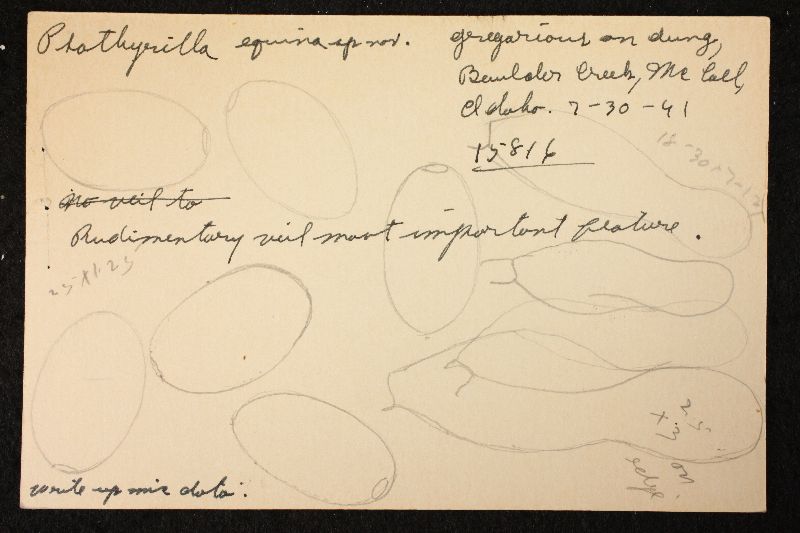 Psathyrilla equina sp nov.
gregarious on dung,
Boulder Creek, Mc Call,
Idaho. 7-30-41
15816
no veil to
Rudimentary veil most important feature.
25 x 1.25
18-30 x 7-12
25
x 3 on
edge
write up mic data.